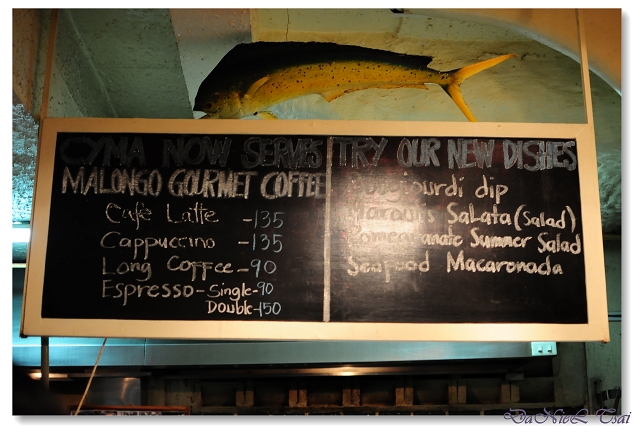 CYMA NOW SERVES
MALONGO GOURMET COFFEE
Cafe Latte -135
Cappuccino -135
Long Coffee -90
Espresso - Single -90
Double -150
TRY OUR NEW DISHES
dip
Salata (Salad)
Pomegranate Summer Salad
Seafood Macaronada
DaNieL Tsai